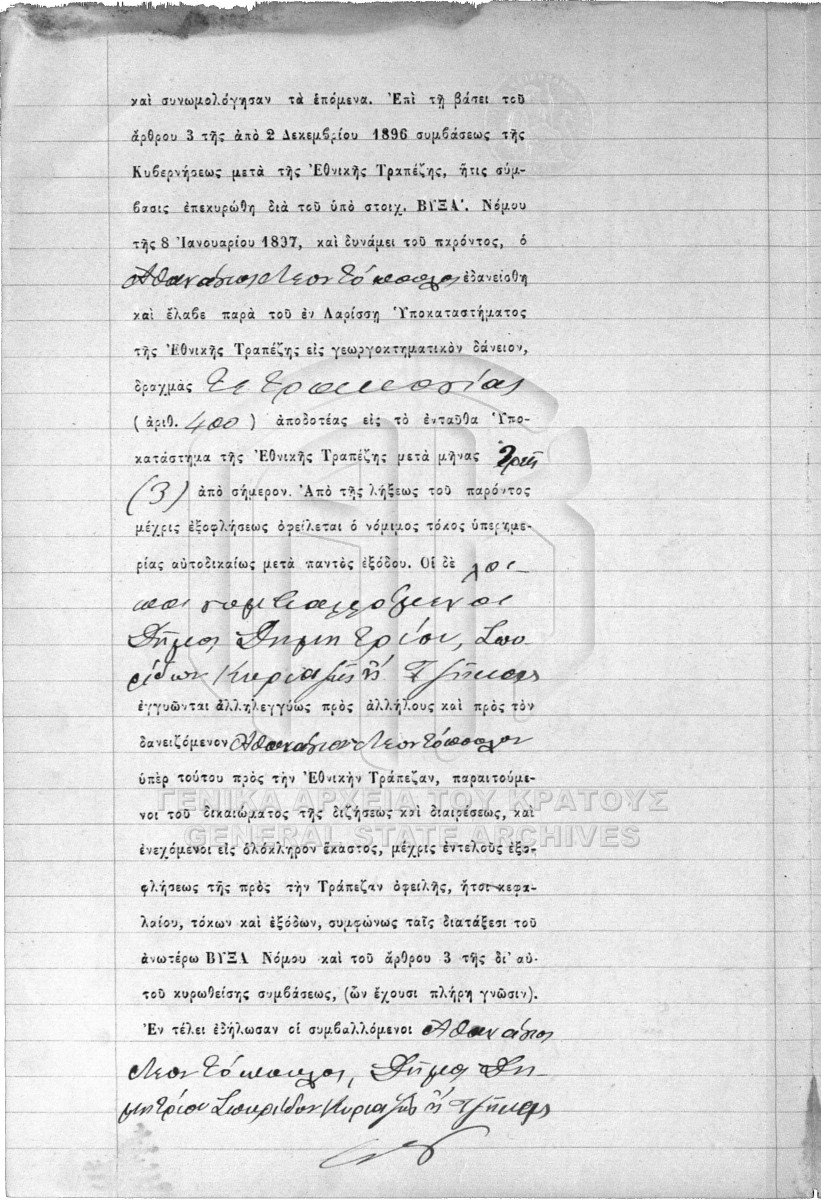 καὶ συνωμολόγησαν τὰ ἑπόμενα. Ἐπὶ τῇ βάσει τοῦ
ἄρθρου 3 τῆς ἀπὸ 2 Δεκεμβρίου 1896 συμβάσεως τῆς
Κυβερνήσεως μετὰ τῆς Ἐθνικῆς Τραπέζης, ἥτις σύμ-
βασις ἐπεκυρώθη διὰ τοῦ ὑπὸ στοιχ. ΒΥΞΑ′. Νόμου
τῆς 8 Ἰανουαρίου 1897, καὶ δυνάμει τοῦ παρόντος, ὁ
Ἀθανάσιος Λεοντόπουλος ἐδανείσθη
καὶ ἔλαβε παρὰ τοῦ ἐν Λαρίσσῃ Ὑποκαταστήματος
τῆς Ἐθνικῆς Τραπέζης εἰς γεωργοκτηματικὸν δάνειον,
δραχμὰς Τετρακοσίας
(ἀριθ. 400) ἀποδοτέας εἰς τὸ ἐνταῦθα Ὑπο-
κατάστημα τῆς Ἐθνικῆς Τραπέζης μετὰ μῆνας τρεῖς
(3) ἀπὸ σήμερον. Ἀπὸ τῆς λήξεως τοῦ παρόντος
μέχρις ἐξοφλήσεως ὀφείλεται ὁ νόμιμος τόκος ὑπερημε-
ρίας αὐτοδικαίως μετὰ παντὸς ἐξόδου. Οἱ δὲ λοι-
ποι συμβαλλόμενοι
Δῆμος Δημητρίου, Σπυ-
ρίδων Κυριαζῆς ἢ Τζήκας
ἐγγυῶνται ἀλληλεγγύως πρὸς ἀλλήλους καὶ πρὸς τὸν
δανειζόμενον Ἀθανάσιον Λεοντόπουλον
ὑπὲρ τούτου πρὸς τὴν Ἐθνικὴν Τράπεζαν, παραιτούμε-
νοι τοῦ δικαιώματος τῆς διζήσεως καὶ διαιρέσεως, καὶ
ἐνεχόμενοι εἰς ὁλόκληρον ἕκαστος, μέχρις ἐντελοῦς ἐξο-
φλήσεως τῆς πρὸς τὴν Τράπεζαν ὀφειλῆς, ἤτσι κεφα-
λαίου, τόκων καὶ ἐξόδων, συμφώνως ταῖς διατάξεσι τοῦ
ἀνωτέρω ΒΥΞΑ Νόμου καὶ τοῦ ἄρθρου 3 τῆς δι' αὐ-
τοῦ κυρωθείσης συμβάσεως, (ὧν ἔχουσι πλήρη γνῶσιν).
Ἐν τέλει ἐδήλωσαν οἱ συμβαλλόμενοι Ἀθανάσιος
Λεοντόπουλος, Δῆμος Δη-
μητρίου Σπυρίδων Κυριαζῆς ἢ Τζήκας
ΓΕΝΙΚΑ ΑΡΧΕΙΑ ΤΟΥ ΚΡΑΤΟΥΣ
GENERAL STATE ARCHIVES